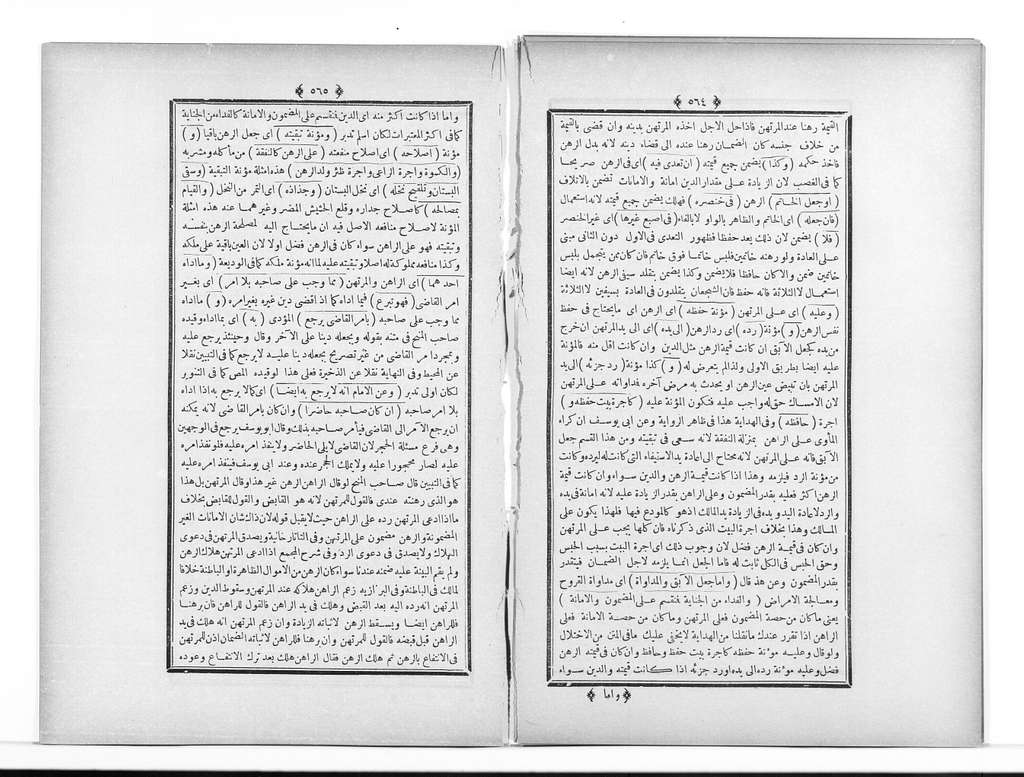 ﴿ ٥٦٤ ﴾
القيمة رهنا عند المرتهن فاذا حل الاجل اخذه المرتهن بدينه وان قضى بالقيمة
من خلاف جنسه كان الضمان رهنا عنده الى قضاء دينه لانه بدل الرهن
فاخذ حكمه (وكذا) يضمن جميع قيمته (ان تعدى فيه) اى فى الرهن صريحا
كما فى الغصب لان الزيادة على مقدار الدين امانة والامانات تضمن بالاتلاف
(او جعل الخاتم) الرهن (فى خنصره) فهلك يضمن جميع قيمته لانه استعمال
(فان جعله) اى الخاتم والظاهر بالواو لا بالفاء (فى اصبع غيرها) اى غير الخنصر
(فلا) يضمن لان ذلك يعد حفظا فظهور التعدى فى الاول دون الثانى مبنى
على العادة ولو رهنه خاتمين فلبس خاتما فوق خاتم فان كان ممن يتجمل بلبس
خاتمين ضمن والا كان حافظا فلا يضمن وكذا يضمن بتقلد سيفى الرهن لانه ايضا
استعمال لا الثلاثة فانه حفظ فان الشجعان يتقلدون فى العادة بسيفين لا الثلاثة
(وعليه) اى على المرتهن (مؤنة حفظه) اى الرهن اى مايحتاج فى حفظ
نفس الرهن (و) مؤنة (رده) اى رد الرهن (الى يده) اى الى يد المرتهن ان خرج
من يده كجعل الآبق ان كانت قيمة الرهن مثل الدين وان كانت اقل منه فالمؤنة
عليه ايضا بطريق الاولى ولذا لم يتعرض له (و) كذا مؤنة (رد جزئه) الى يد
المرتهن بان تبيض عين الرهن او يحدث به مرض آخر فداواته على المرتهن
لان الامساك حق له واجب عليه فتكون المؤنة عليه (كاجرة بيت حفظه و)
اجرة (حافظه) وفى الهداية هذا فى ظاهر الرواية وعن ابى يوسف ان كراء
المأوى على الراهن بمنزلة النفقة لانه سعى فى تبقيته ومن هذا القسم جعل
الآبق فانه على المرتهن لانه محتاج الى اعادة يد الاستيفاء التى كانت له ليرده وكانت
من مؤنة الرد فيلزمه وهذا اذا كانت قيمة الرهن والدين سواء وان كانت قيمة
الرهن اكثر فعليه بقدر المضمون وعلى الراهن بقدر الزيادة عليه لانه امانة فى يده
والرد لاعادة اليد ويده فى الزيادة يد المالك اذ هو كالمودع فيها فلهذا يكون على
المالك وهذا بخلاف اجرة البيت الذى ذكرناه فان كلها يجب على المرتهن
وان كان فى قيمة الرهن فضل لان وجوب ذلك اى اجرة البيت بسبب الحبس
وحق الحبس فى الكل ثابت له فاما الجعل انما يلزمه لاجل الضمان فيتقدر
بقدر المضمون وعن هذا قال (واما جعل الآبق والمداواة) اى مداواة القروح
ومعالجة الامراض (والفداء من الجناية فتقسم على المضمون والامانة)
يعنى ما كان من حصة المضمون فعلى المرتهن وما كان من حصة الامانة فعلى
الراهن اذا تقرر عندك مانقلنا من الهداية لايخفى عليك مافى المتن من الاختلال
ولو قال وعليه مؤنة حفظه كاجرة بيت حفظ وحافظ وان كان فى قيمته الرهن
فضل وعليه مؤنة رده الى يده او رد جزئه اذا كانت قيمته والدين سواء
﴿ واما ﴾
﴿ ٥٦٥ ﴾
واما اذا كانت اكثر منه اى الدين فتقسم على المضمون والامانة كالفداء من الجناية
كما فى اكثر المعتبرات لكان اسلم تدبر (ومؤنة تبقيته) اى جعل الرهن باقيا (و)
مؤنة (اصلاحه) اى اصلاح منفعته (على الراهن كالنفقة) من مأكله ومشربه
(والكسوة واجرة الراعى واجرة ظئر ولد الرهن) هذه امثلة مؤنة التبقية (وسقى
البستان وتلقيح نخله) اى نخل البستان (وجذاذه) اى التمر من النخل (والقيام
بمصالحه) كاصلاح جداره وقلع الحشيش المضر وغيرهما عند هذه امثلة
المؤنة لاصلاح منافعه الاصل فيه ان مايحتاج اليه لمصلحة الرهن بنفسه
وتبقيته فهو على الراهن سواء كان فى الرهن فضل اولا لان العين باقية على ملكه
وكذا منافعه مملوكة له اصلا وتبقيته عليه لما انه مؤنة ملكه كما فى الوديعة (وما اداه
احدهما) اى الراهن والمرتهن (مما وجب على صاحبه بلا امر) اى بغير
امر القاضى (فهو تبرع) فيما اداه كما اذا قضى دين غيره بغير امره (و) ما اداه
مما وجب على صاحبه (بامر القاضى يرجع) المؤدى (به) اى بما اداه وقيده
صاحب المنح فى متنه بقوله ويجعله دينا على الآخر وقال وحينئذ يرجع عليه
وبمجرد امر القاضى من غير تصريح بجعله دينا عليه لا يرجع كما فى التبيين نقلا
عن المحيط وفى النهاية نقلا عن الذخيرة فعلى هذا لو قيده المص كما فى التنوير
لكان اولى تدبر (وعن الامام انه لا يرجع به ايضا) اى كما لا يرجع به اذا اداه
بلا امر صاحبه (ان كان صاحبه حاضرا) وان كان بامر القاضى لانه يمكنه
ان يرجع الامر الى القاضى فيأمر صاحبه بذلك وقال ابو يوسف يرجع فى الوجهين
وهى فرع مسئلة الحجر لان القاضى لا يلى الحاضر ولا ينفذ امره عليه فلو نفذ امره
عليه لصار محجورا عليه ولا يملك الحجر عنده وعند ابى يوسف فينفذ امره عليه
كما فى التبيين قال صاحب المنح لو قال الراهن الرهن غير هذا وقال المرتهن بل هذا
هو الذى رهنته عندى فالقول للمرتهن لانه هو القابض والقول للقابض بخلاف
ما اذا ادعى المرتهن رده على الراهن حيث لايقبل قوله لان ذلك شان الامانات الغير
المضمونة والرهن مضمون على المرتهن وفى التاتارخانية ويصدق المرتهن فى دعوى
الهلاك ولا يصدق فى دعوى الرد وفى شرح المجمع اذا ادعى المرتهن هلاك الرهن
ولم يقم البينة عليه ضمنه عندنا سواء كان الرهن من الاموال الظاهرة او الباطنة خلافا
لمالك فى الباطنة وفى البزازية زعم الراهن هلاكه عند المرتهن وسقوط الدين وزعم
المرتهن انه رده اليه بعد القبض وهلك فى يد الراهن فالقول للراهن فان رهنا
فللراهن ايضا ويسقط الرهن لاثباته الزيادة وان زعم المرتهن انه هلك فى يد
الراهن قبل قبضه فالقول للمرتهن وان رهنا فللراهن لاثباته الضمان اذن للمرتهن
فى الانتفاع بالرهن ثم هلك الرهن فقال الراهن هلك بعد ترك الانتفاع وعوده